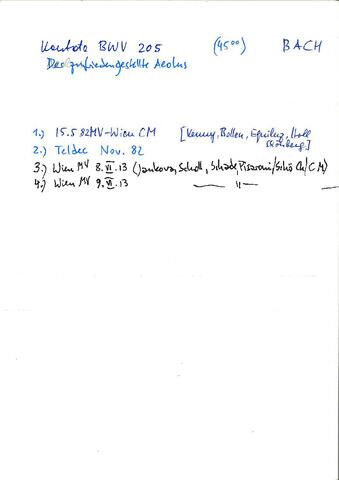 Kantate BWV 205 (45⁰⁰) BACH
Der zufriedengestellte Aeolus
1.) 15.5 82 MV-Wien CM [Kenny, Bollen, Equiluz, Holl
2.) Teldec Nov. 82
3.) Wien MV 8.VI.13 (Jankova, Scholl, Schade, Pisaroni/Schö Ch/CM)
4.) Wien MV 9.VI.13 — " —